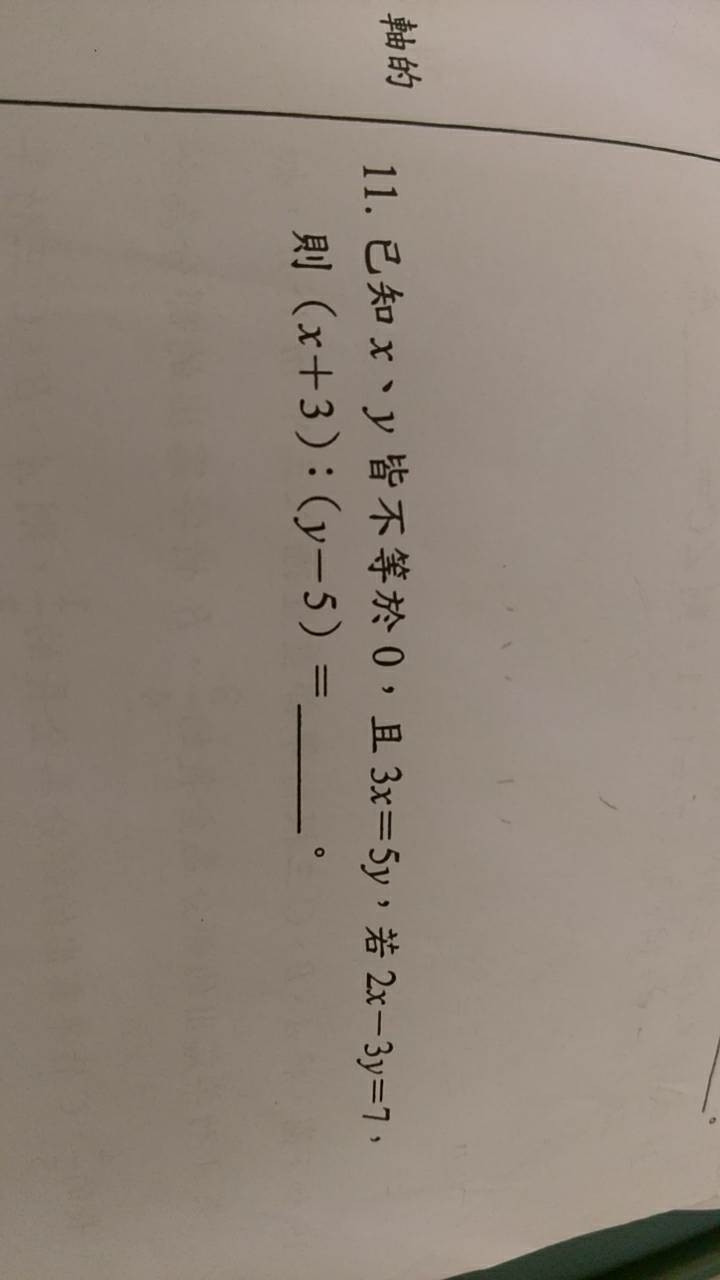 軸的
11. 已知 x、y 皆不等於 0，且 3x=5y，若 2x−3y=7，
則 (x+3)：(y−5) = ______。